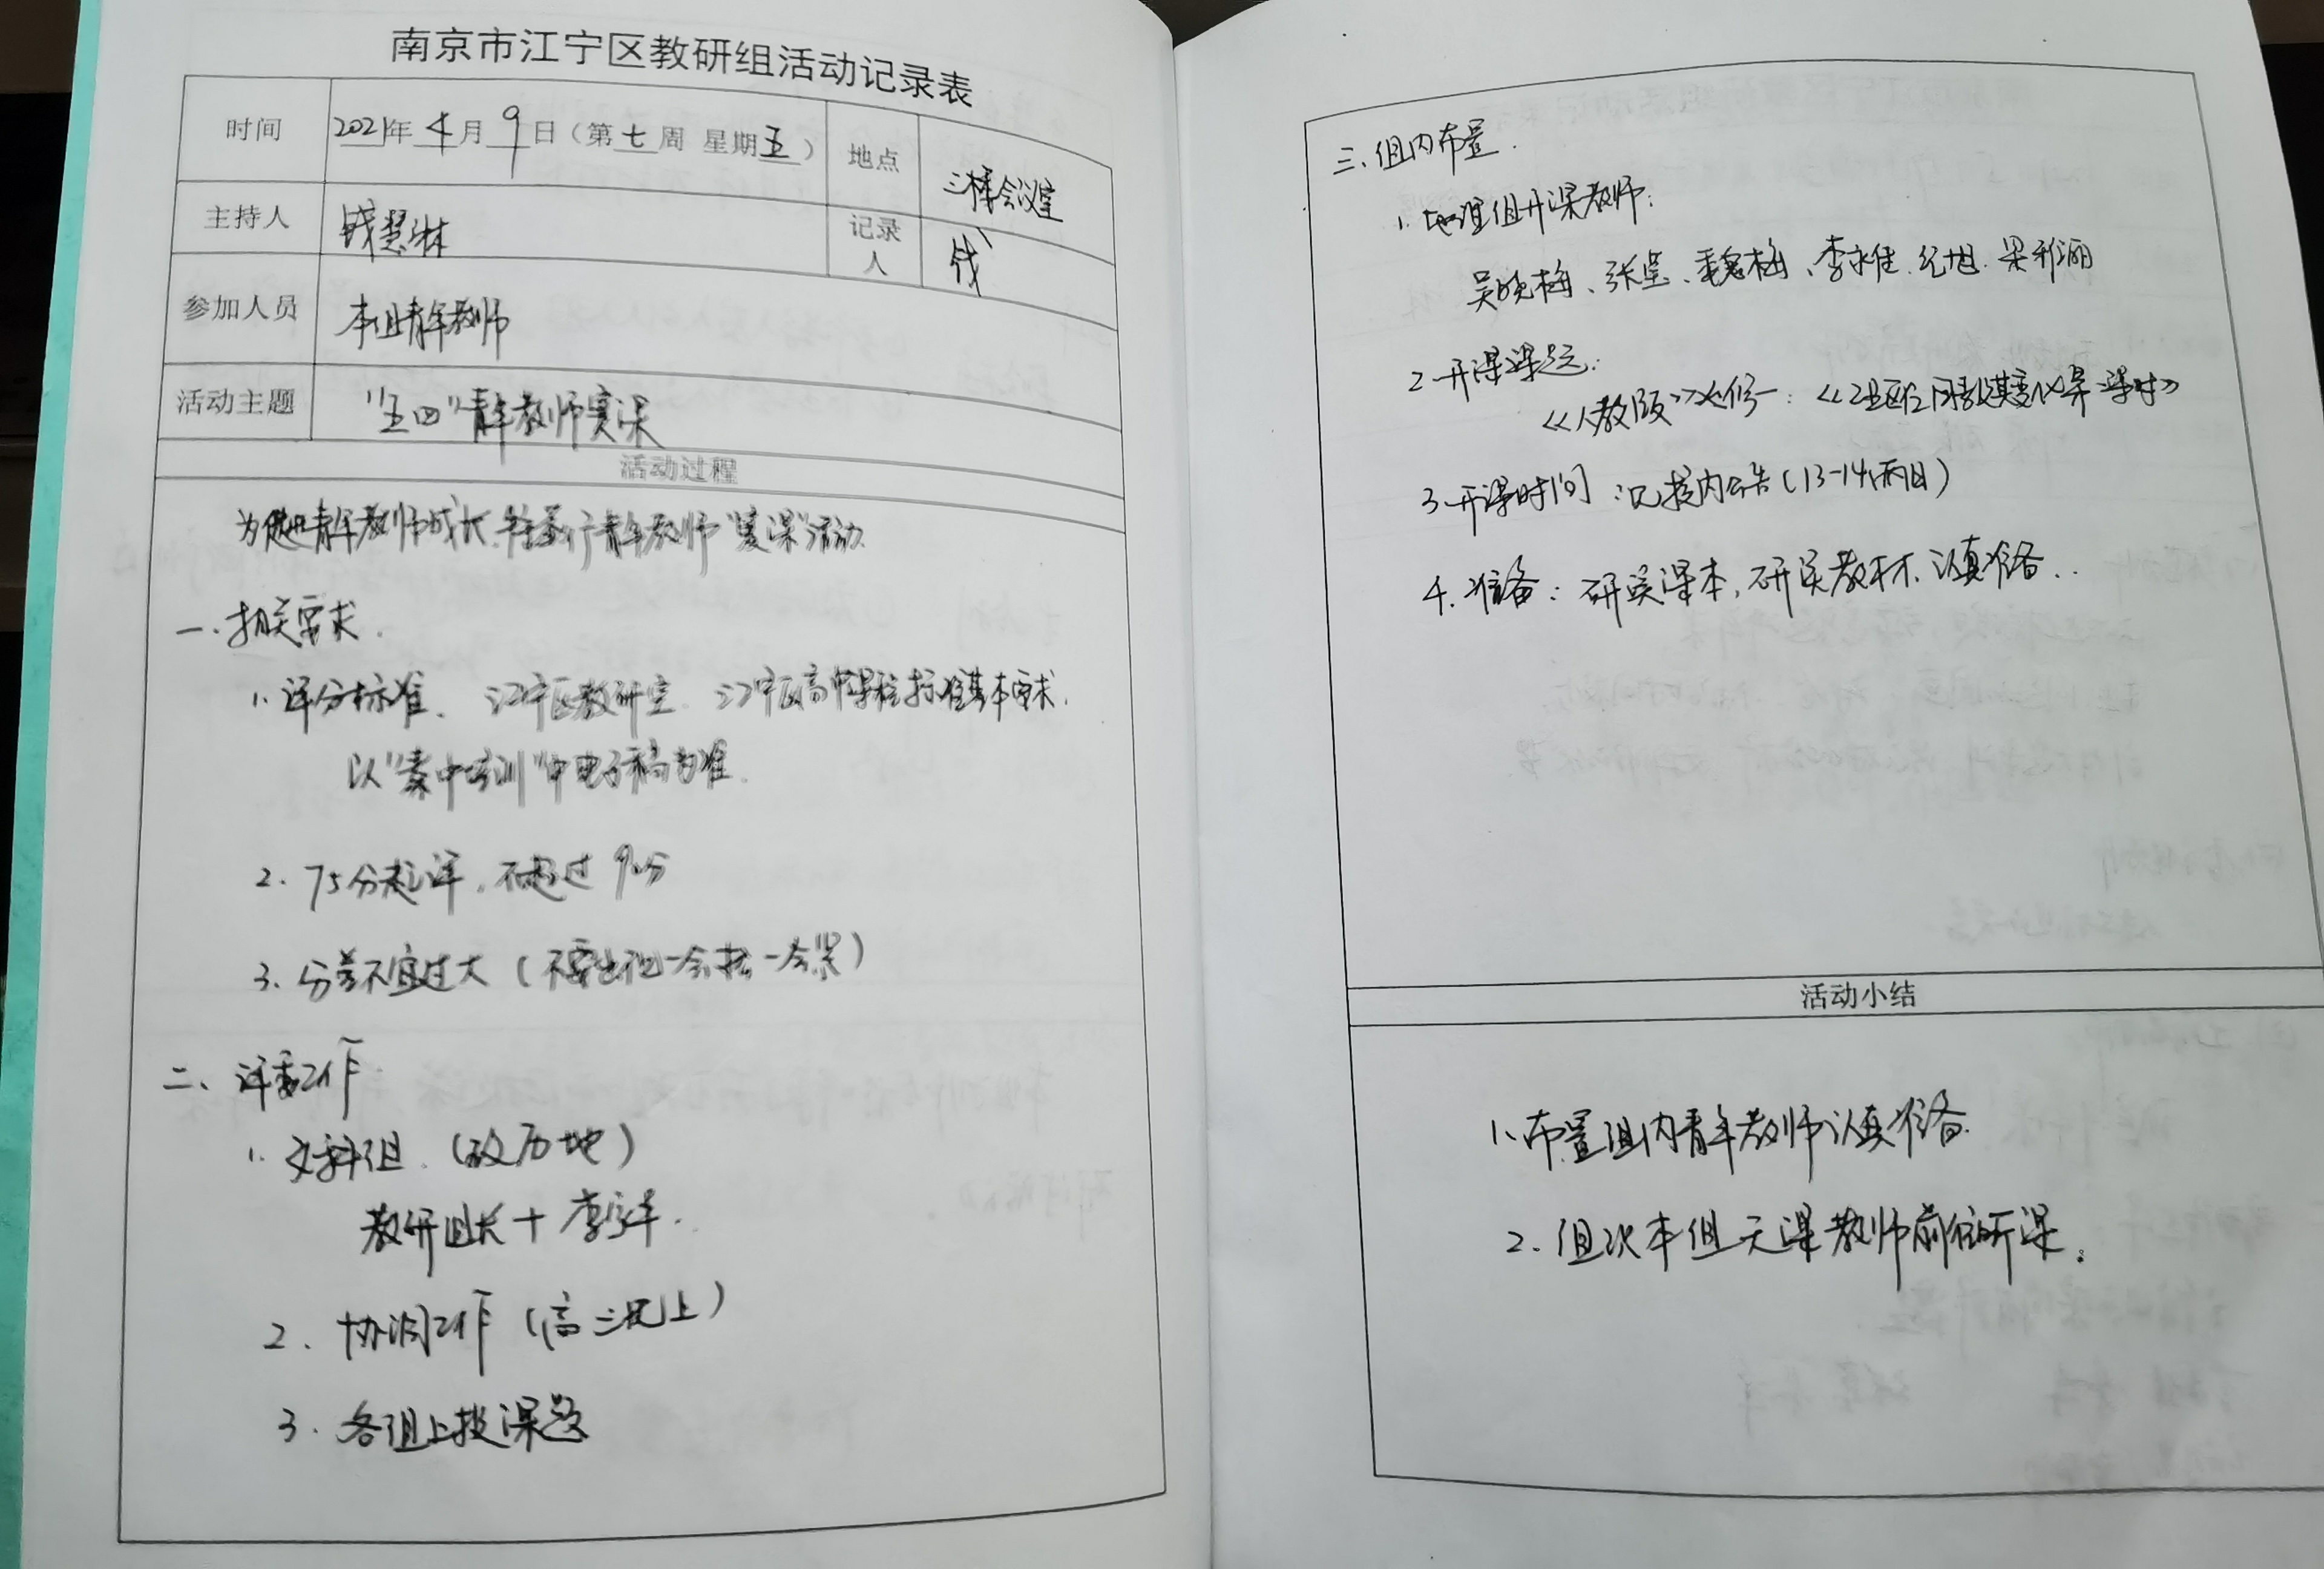 南京市江宁区教研组活动记录表
时间 2021年 4月 9日（第七周 星期五） 地点 三楼会议室
主持人 钱慧琳 记录人 钱
参加人员 本组青年教师
活动主题 "五四"青年教师赛课
活动过程
为促进青年教师成长,行青年教师"赛课"活动.
一.相关要求.
1.评分标准、江宁区教研室、江宁区高中课程标准基本要求.
以"集中培训"中电子稿为准.
2.75分起评,不超过9分
3.分差不宜过大(不要出现一会 一会)
二、评委工作
1.文科组.(政历地)
教研组长+李.
2.协调工作(高三晚上)
3.各组上报课题
三、组内布置.
1.地理组开课教师:
吴晓梅、张莹、魏梅、李永佳、纪旭、梁彩丽
2.开课课题:
《人教版》必修一:
3.开课时间:见校内公告(13-14两日)
4.准备:研读课本,研读教材,认真准备..
活动小结
1.布置组内青年教师认真准备.
2.组次本组无课教师前往听课。